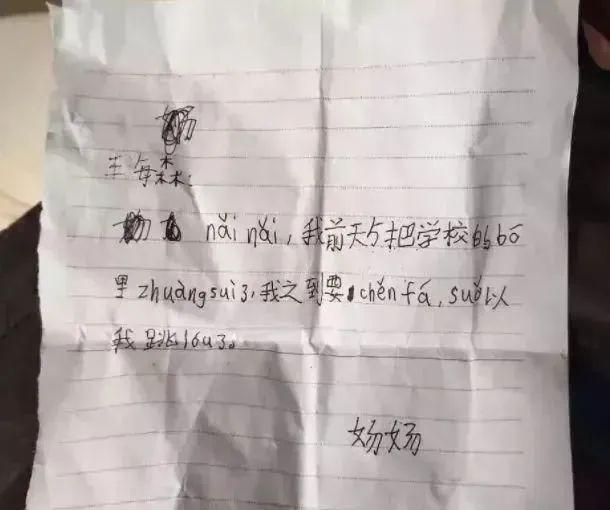 王每森:
nǎi nǎi, 我前天把学校的bō
里zhuàngsuì3,我之到要chěnfá,suǒ以
我跳lóu3。